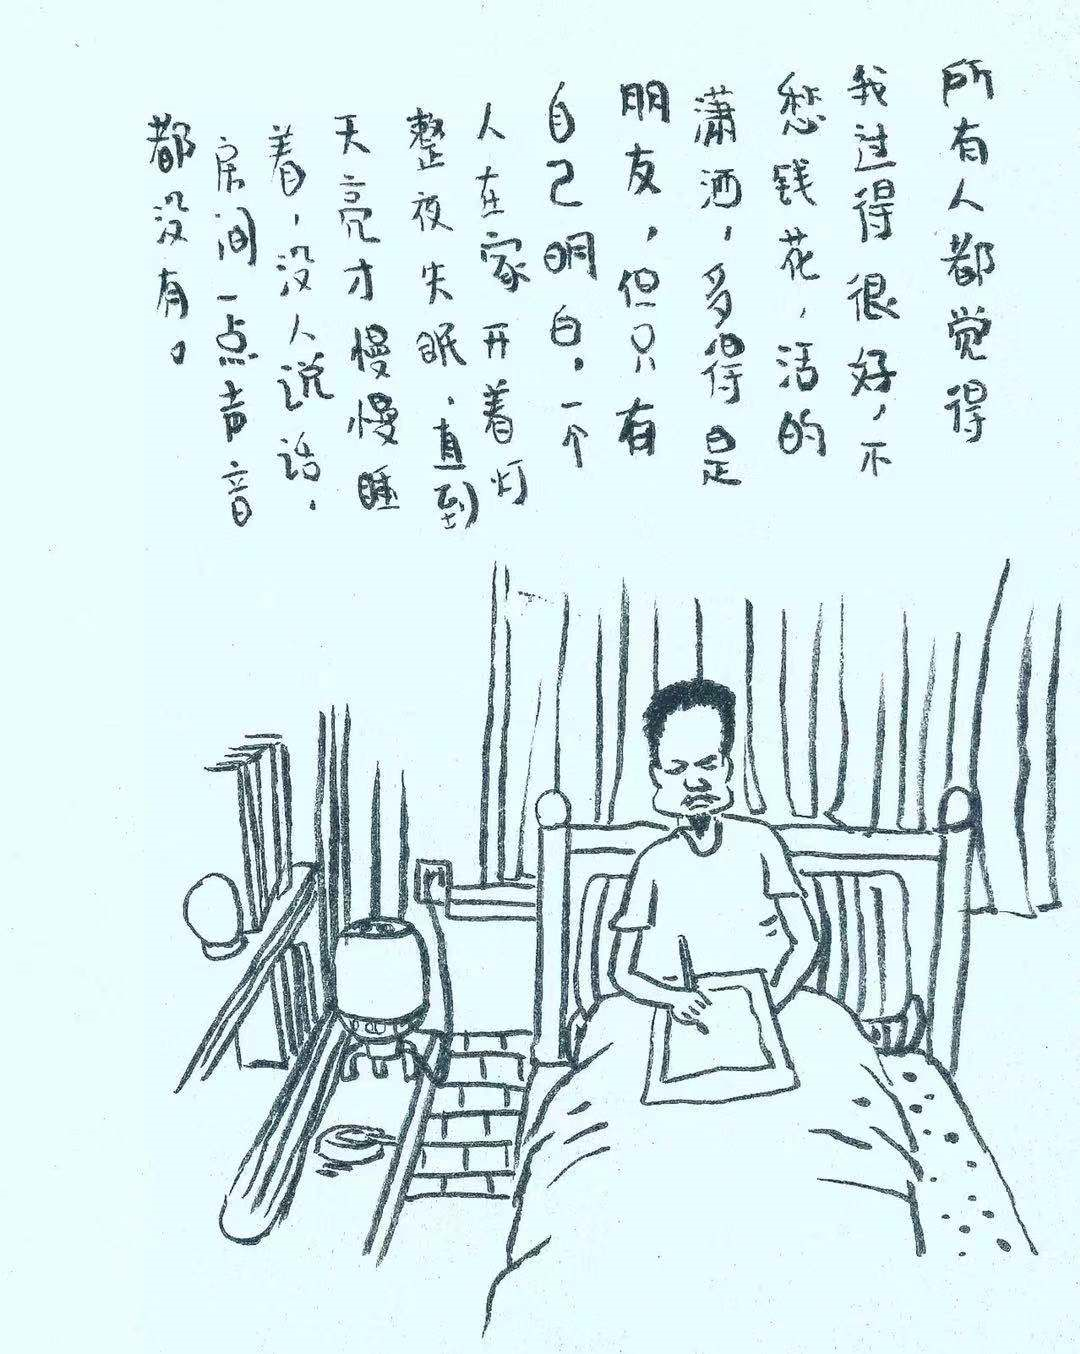 所有人都觉得
我过得很好，不
愁钱花，活的
潇洒，多得是
朋友，但只有
自己明白，一个
人在家开着灯
整夜失眠，直到
天亮才慢慢睡
着，没人说话，
房间一点声音
都没有。